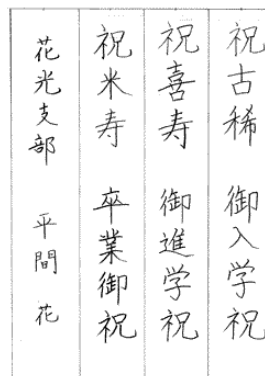 祝古稀 御入学祝
祝喜寿 御進学祝
祝米寿 卒業御祝
花光支部 平間 花